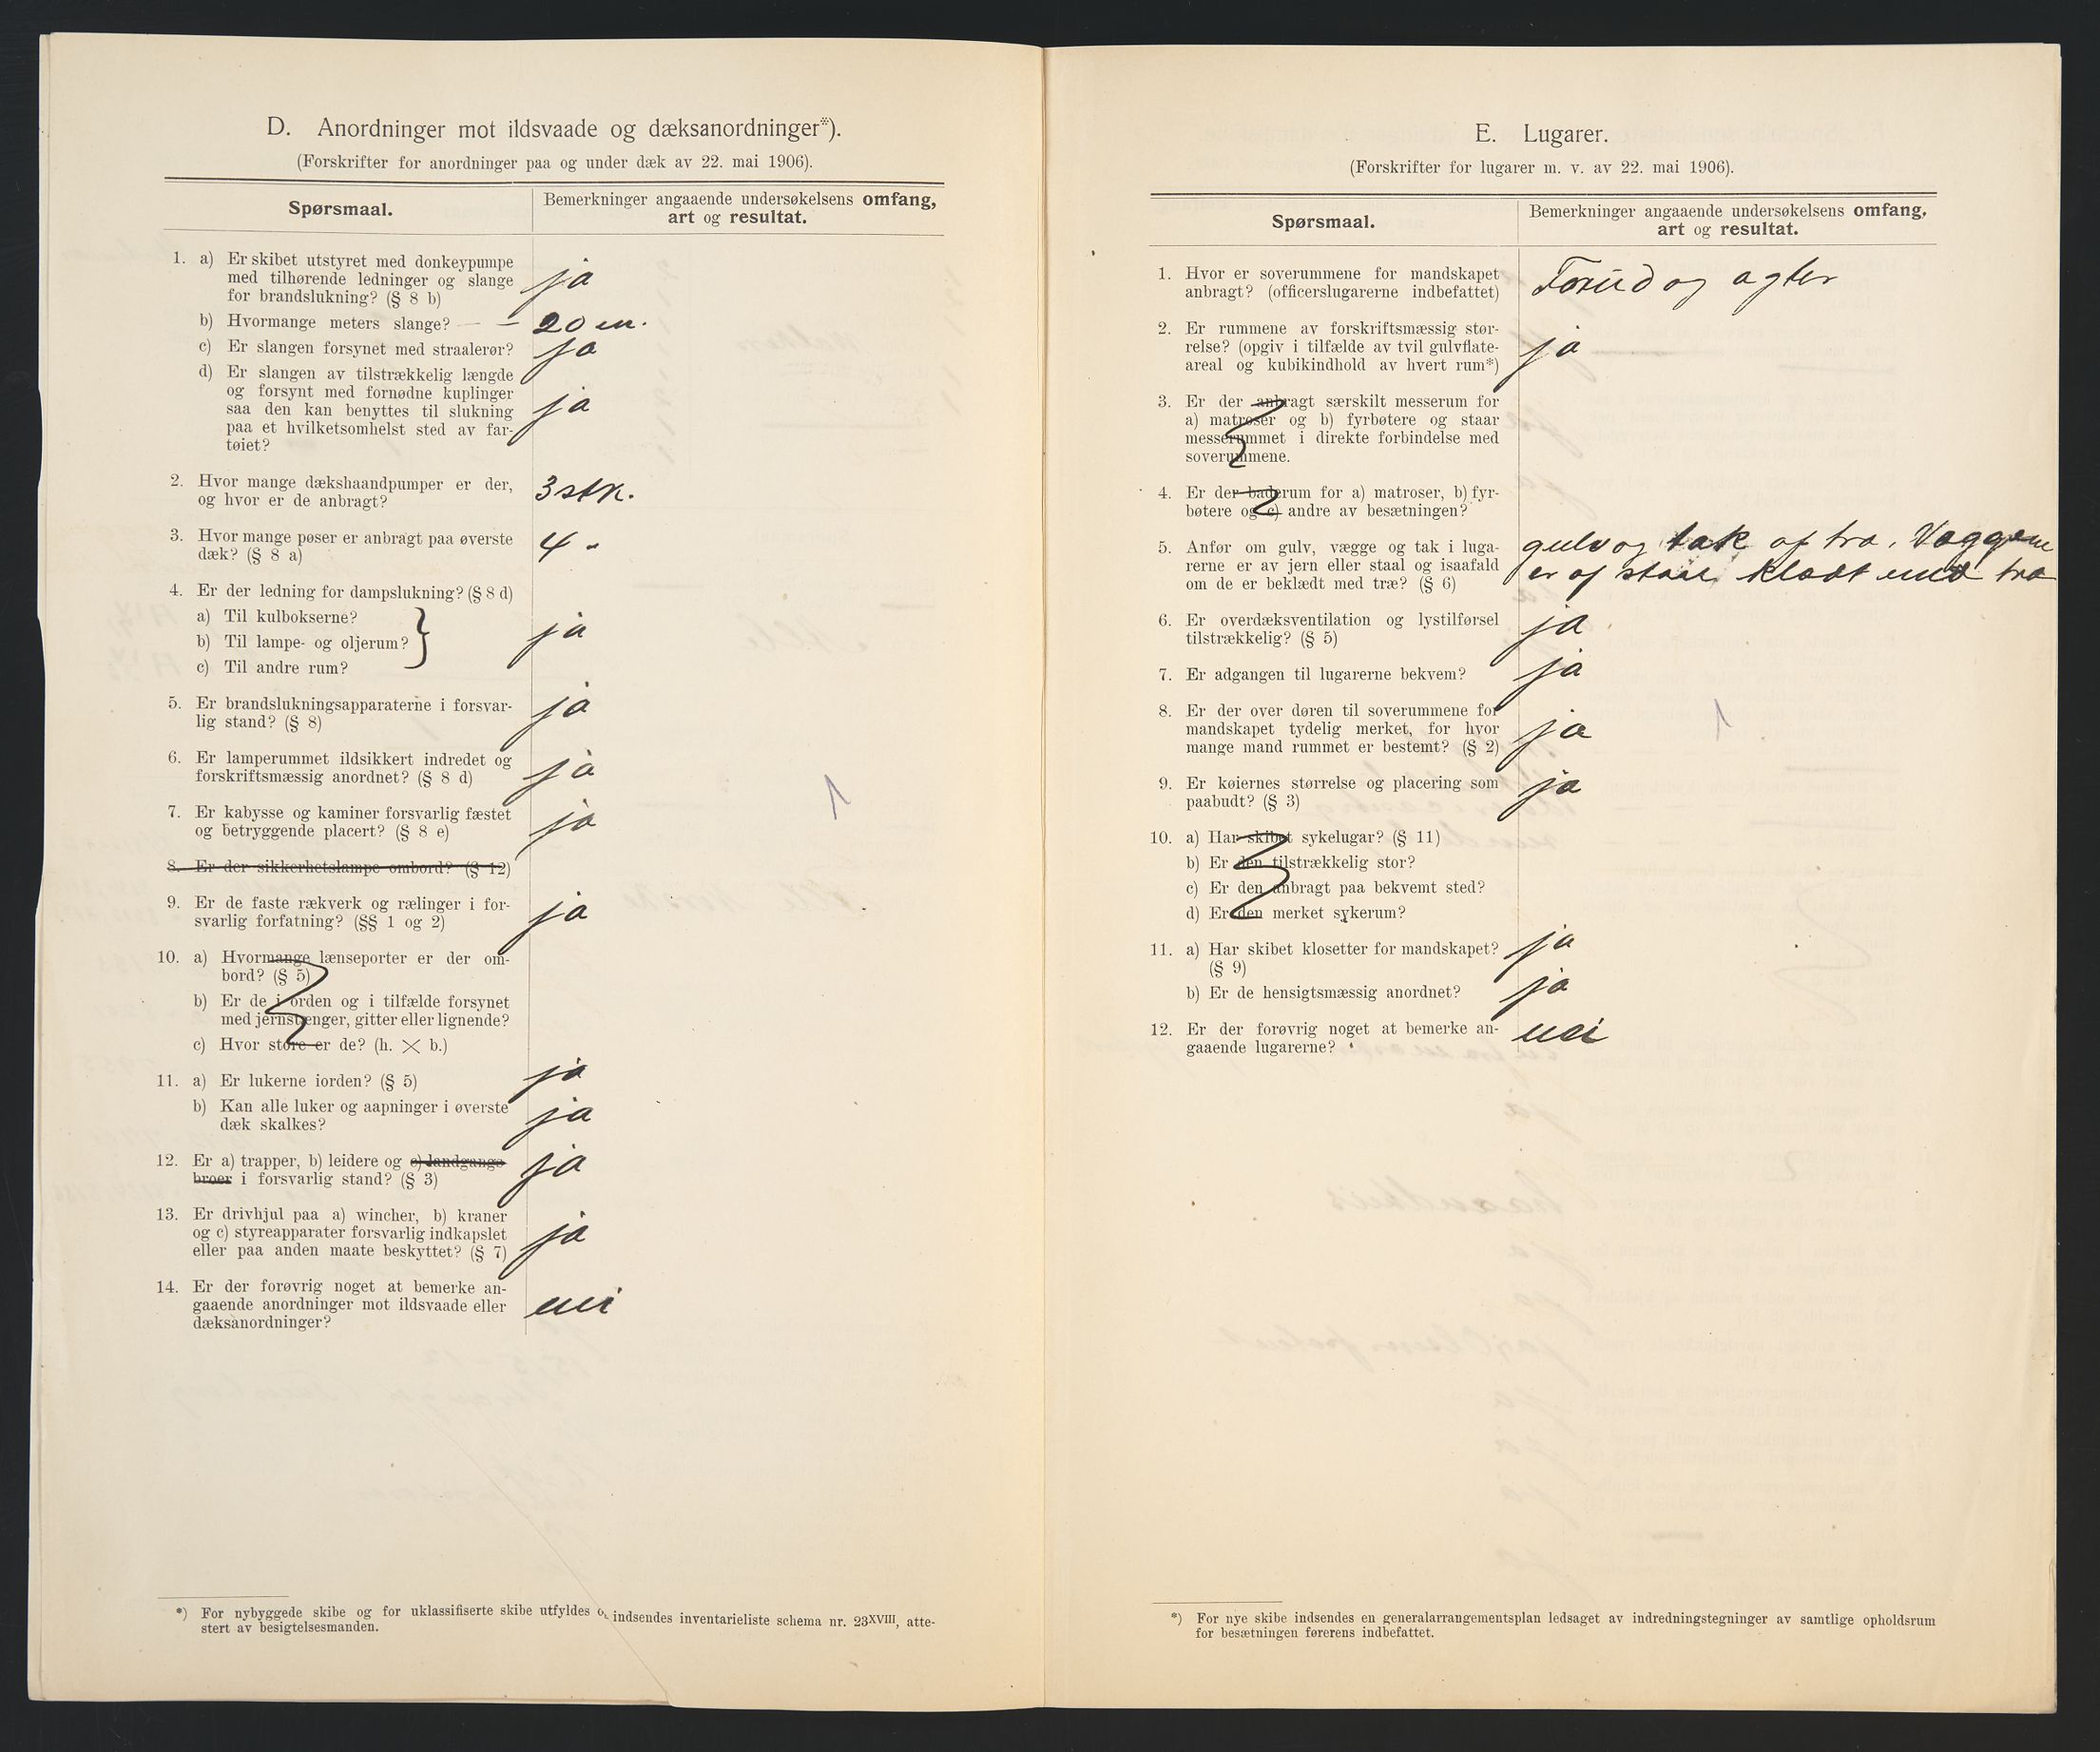 D. Anordninger mot ildsvaade og dæksanordninger*).
(Forskrifter for anordninger paa og under dæk av 22. mai 1906).
Spørsmaal.
Bemerkninger angaaende undersøkelsens omfang,
art og resultat.
1. a) Er skibet utstyret med donkeypumpe
med tilhørende ledninger og slange
for brandslukning? (§ 8 b)
ja
b) Hvormange meters slange? — — 20 m.
c) Er slangen forsynet med straalerør? ja
d) Er slangen av tilstrækkelig længde
og forsynt med fornødne kuplinger
saa den kan benyttes til slukning
paa et hvilketsomhelst sted av far-
tøiet?
ja
2. Hvor mange dækshaandpumper er der,
og hvor er de anbragt?
3 stk.
3. Hvor mange pøser er anbragt paa øverste
dæk? (§ 8 a)
4 "
4. Er der ledning for dampslukning? (§ 8 d)
a) Til kulbokserne?
b) Til lampe- og oljerum? } ja
c) Til andre rum?
5. Er brandslukningsapparaterne i forsvar-
lig stand? (§ 8)
ja
6. Er lamperummet ildsikkert indredet og
forskriftsmæssig anordnet? (§ 8 d)
ja
7. Er kabysse og kaminer forsvarlig fæstet
og betryggende placert? (§ 8 e)
ja
1
8. Er der sikkerhetslampe ombord? (§ 12)
9. Er de faste rækverk og rælinger i for-
svarlig forfatning? (§§ 1 og 2)
ja
10. a) Hvormange lænseporter er der om-
bord? (§ 5)
b) Er de i orden og i tilfælde forsynet
med jernstænger, gitter eller lignende?
c) Hvor store er de? (h. × b.)
11. a) Er lukerne iorden? (§ 5) ja
b) Kan alle luker og aapninger i øverste
dæk skalkes?
ja
12. Er a) trapper, b) leidere og c) landgangs
broer i forsvarlig stand? (§ 3)
ja
13. Er drivhjul paa a) wincher, b) kraner
og c) styreapparater forsvarlig indkapslet
eller paa anden maate beskyttet? (§ 7)
ja
14. Er der forøvrig noget at bemerke an-
gaaende anordninger mot ildsvaade eller
dæksanordninger?
nei
*) For nybyggede skibe og for uklassifiserte skibe utfyldes o indsendes inventarieliste schema nr. 23XVIII, atte-
stert av besigtelsesmanden.
E. Lugarer.
(Forskrifter for lugarer m. v. av 22. mai 1906).
Spørsmaal.
Bemerkninger angaaende undersøkelsens omfang,
art og resultat.
1. Hvor er soverummene for mandskapet
anbragt? (officerslugarerne indbefattet)
Forud og agter
2. Er rummene av forskriftsmæssig stør-
relse? (opgiv i tilfælde av tvil gulvflate-
areal og kubikindhold av hvert rum*)
ja
3. Er der anbragt særskilt messerum for
a) matroser og b) fyrbøtere og staar
messerummet i direkte forbindelse med
soverummene.
4. Er der baderum for a) matroser, b) fyr-
bøtere og c) andre av besætningen?
5. Anfør om gulv, vægge og tak i luga-
rerne er av jern eller staal og isaafald
om de er beklædt med træ? (§ 6)
gulv og tak af træ. Væggene
er af staal klædt med træ
6. Er overdæksventilation og lystilførsel
tilstrækkelig? (§ 5)
ja
7. Er adgangen til lugarerne bekvem? ja
8. Er der over døren til soverummene for
mandskapet tydelig merket, for hvor
mange mand rummet er bestemt? (§ 2)
ja
1
9. Er køiernes størrelse og placering som
paabudt? (§ 3)
ja
10. a) Har skibet sykelugar? (§ 11)
b) Er den tilstrækkelig stor?
c) Er den anbragt paa bekvemt sted?
d) Er den merket sykerum?
11. a) Har skibet klosetter for mandskapet?
(§ 9)
ja
b) Er de hensigtsmæssig anordnet? ja
12. Er der forøvrig noget at bemerke an-
gaaende lugarerne?
nei
*) For nye skibe indsendes en generalarrangementsplan ledsaget av indredningstegninger av samtlige opholdsrum
for besætningen førerens indbefattet.